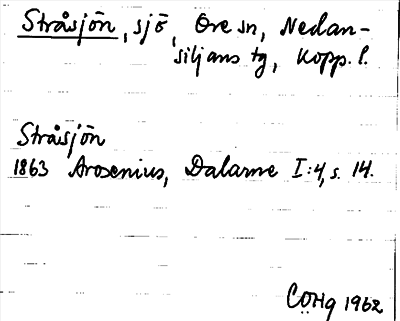 Stråsjön, sjö, Ore sn, Nedan-
siljans tg, Kopp. l.
Stråsjön
1863 Arosenius, Dalarne I:4, s. 14.
CÖHg 1962